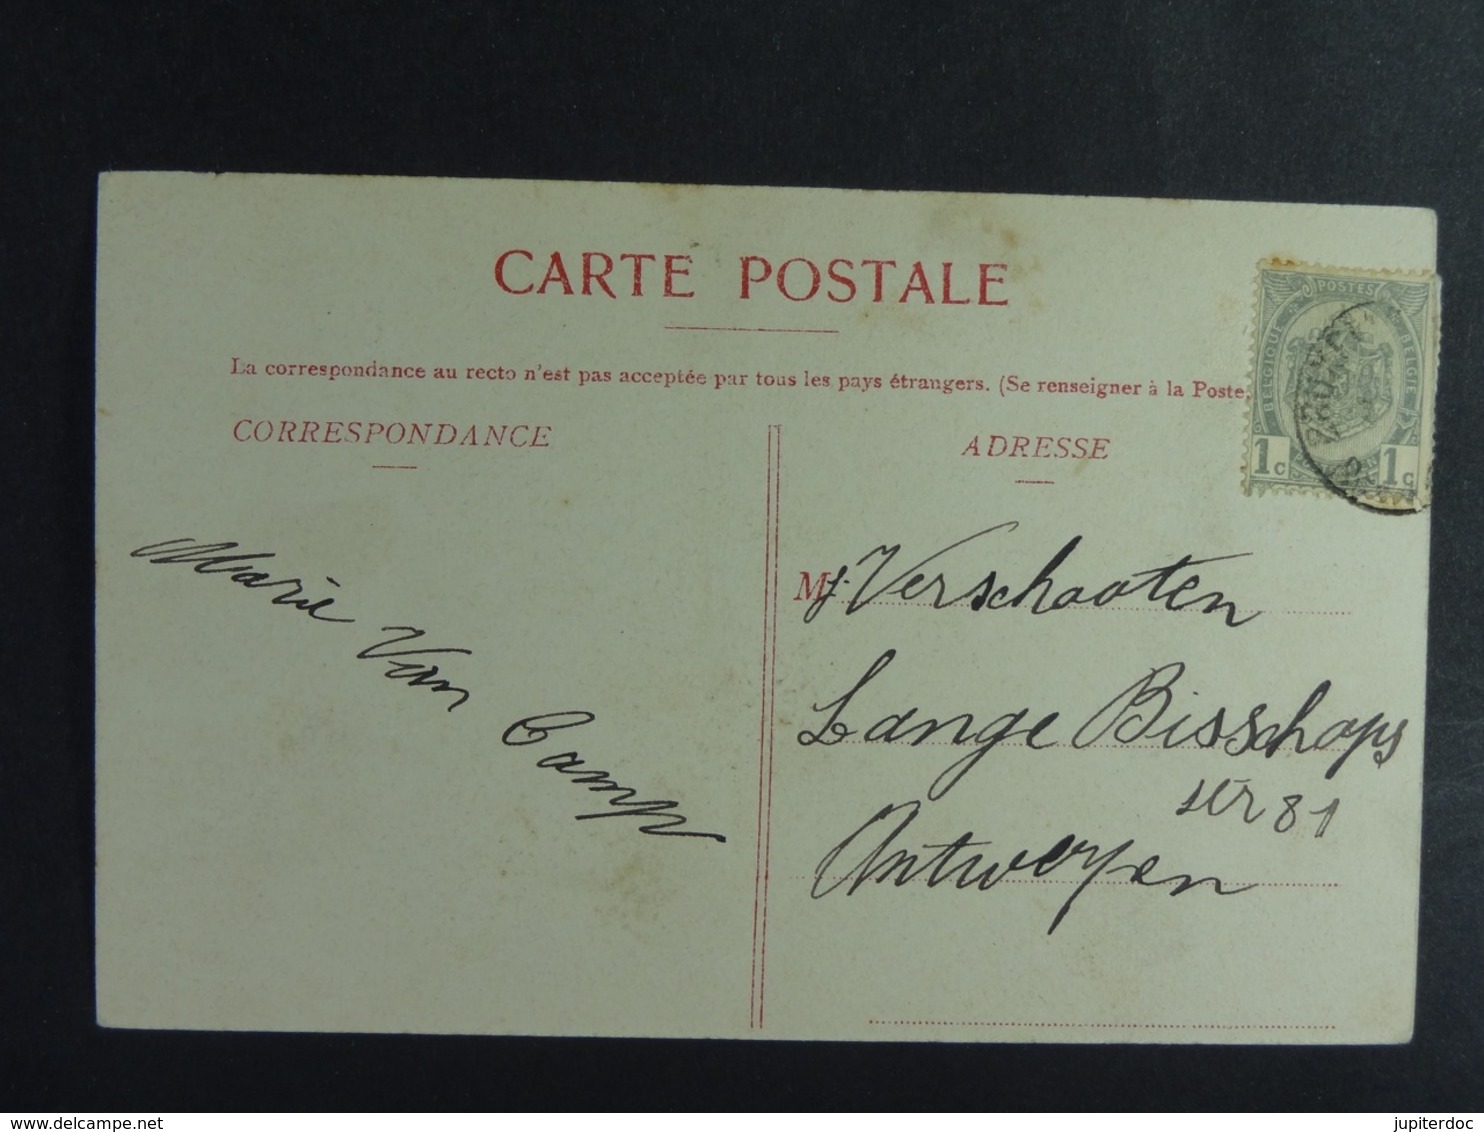 CARTE POSTALE
La correspondance au recto n'est pas acceptée par tous les pays étrangers. (Se renseigner à la Poste
CORRESPONDANCE
ADRESSE
POSTES
BELGIQUE
BELGIE
1c 1c
Marie Van Camp
Mr. Verschooten
Lange Bisschops
str 81
Antwerpen
www.delcampe.net
jupiterdoc